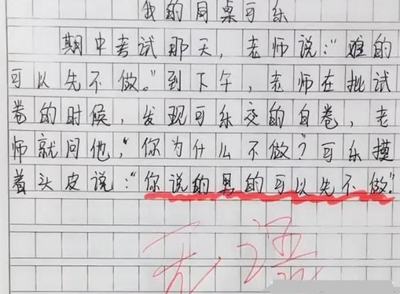 我的同桌可乐
期中考试那天，老师说：“难的
可以先不做。”到下午，老师在批试
卷的时候，发现可乐交的白卷，老
师就问他，“你为什么不做？可乐摸
着头皮说：“你说的男的可以先不做。”
无语